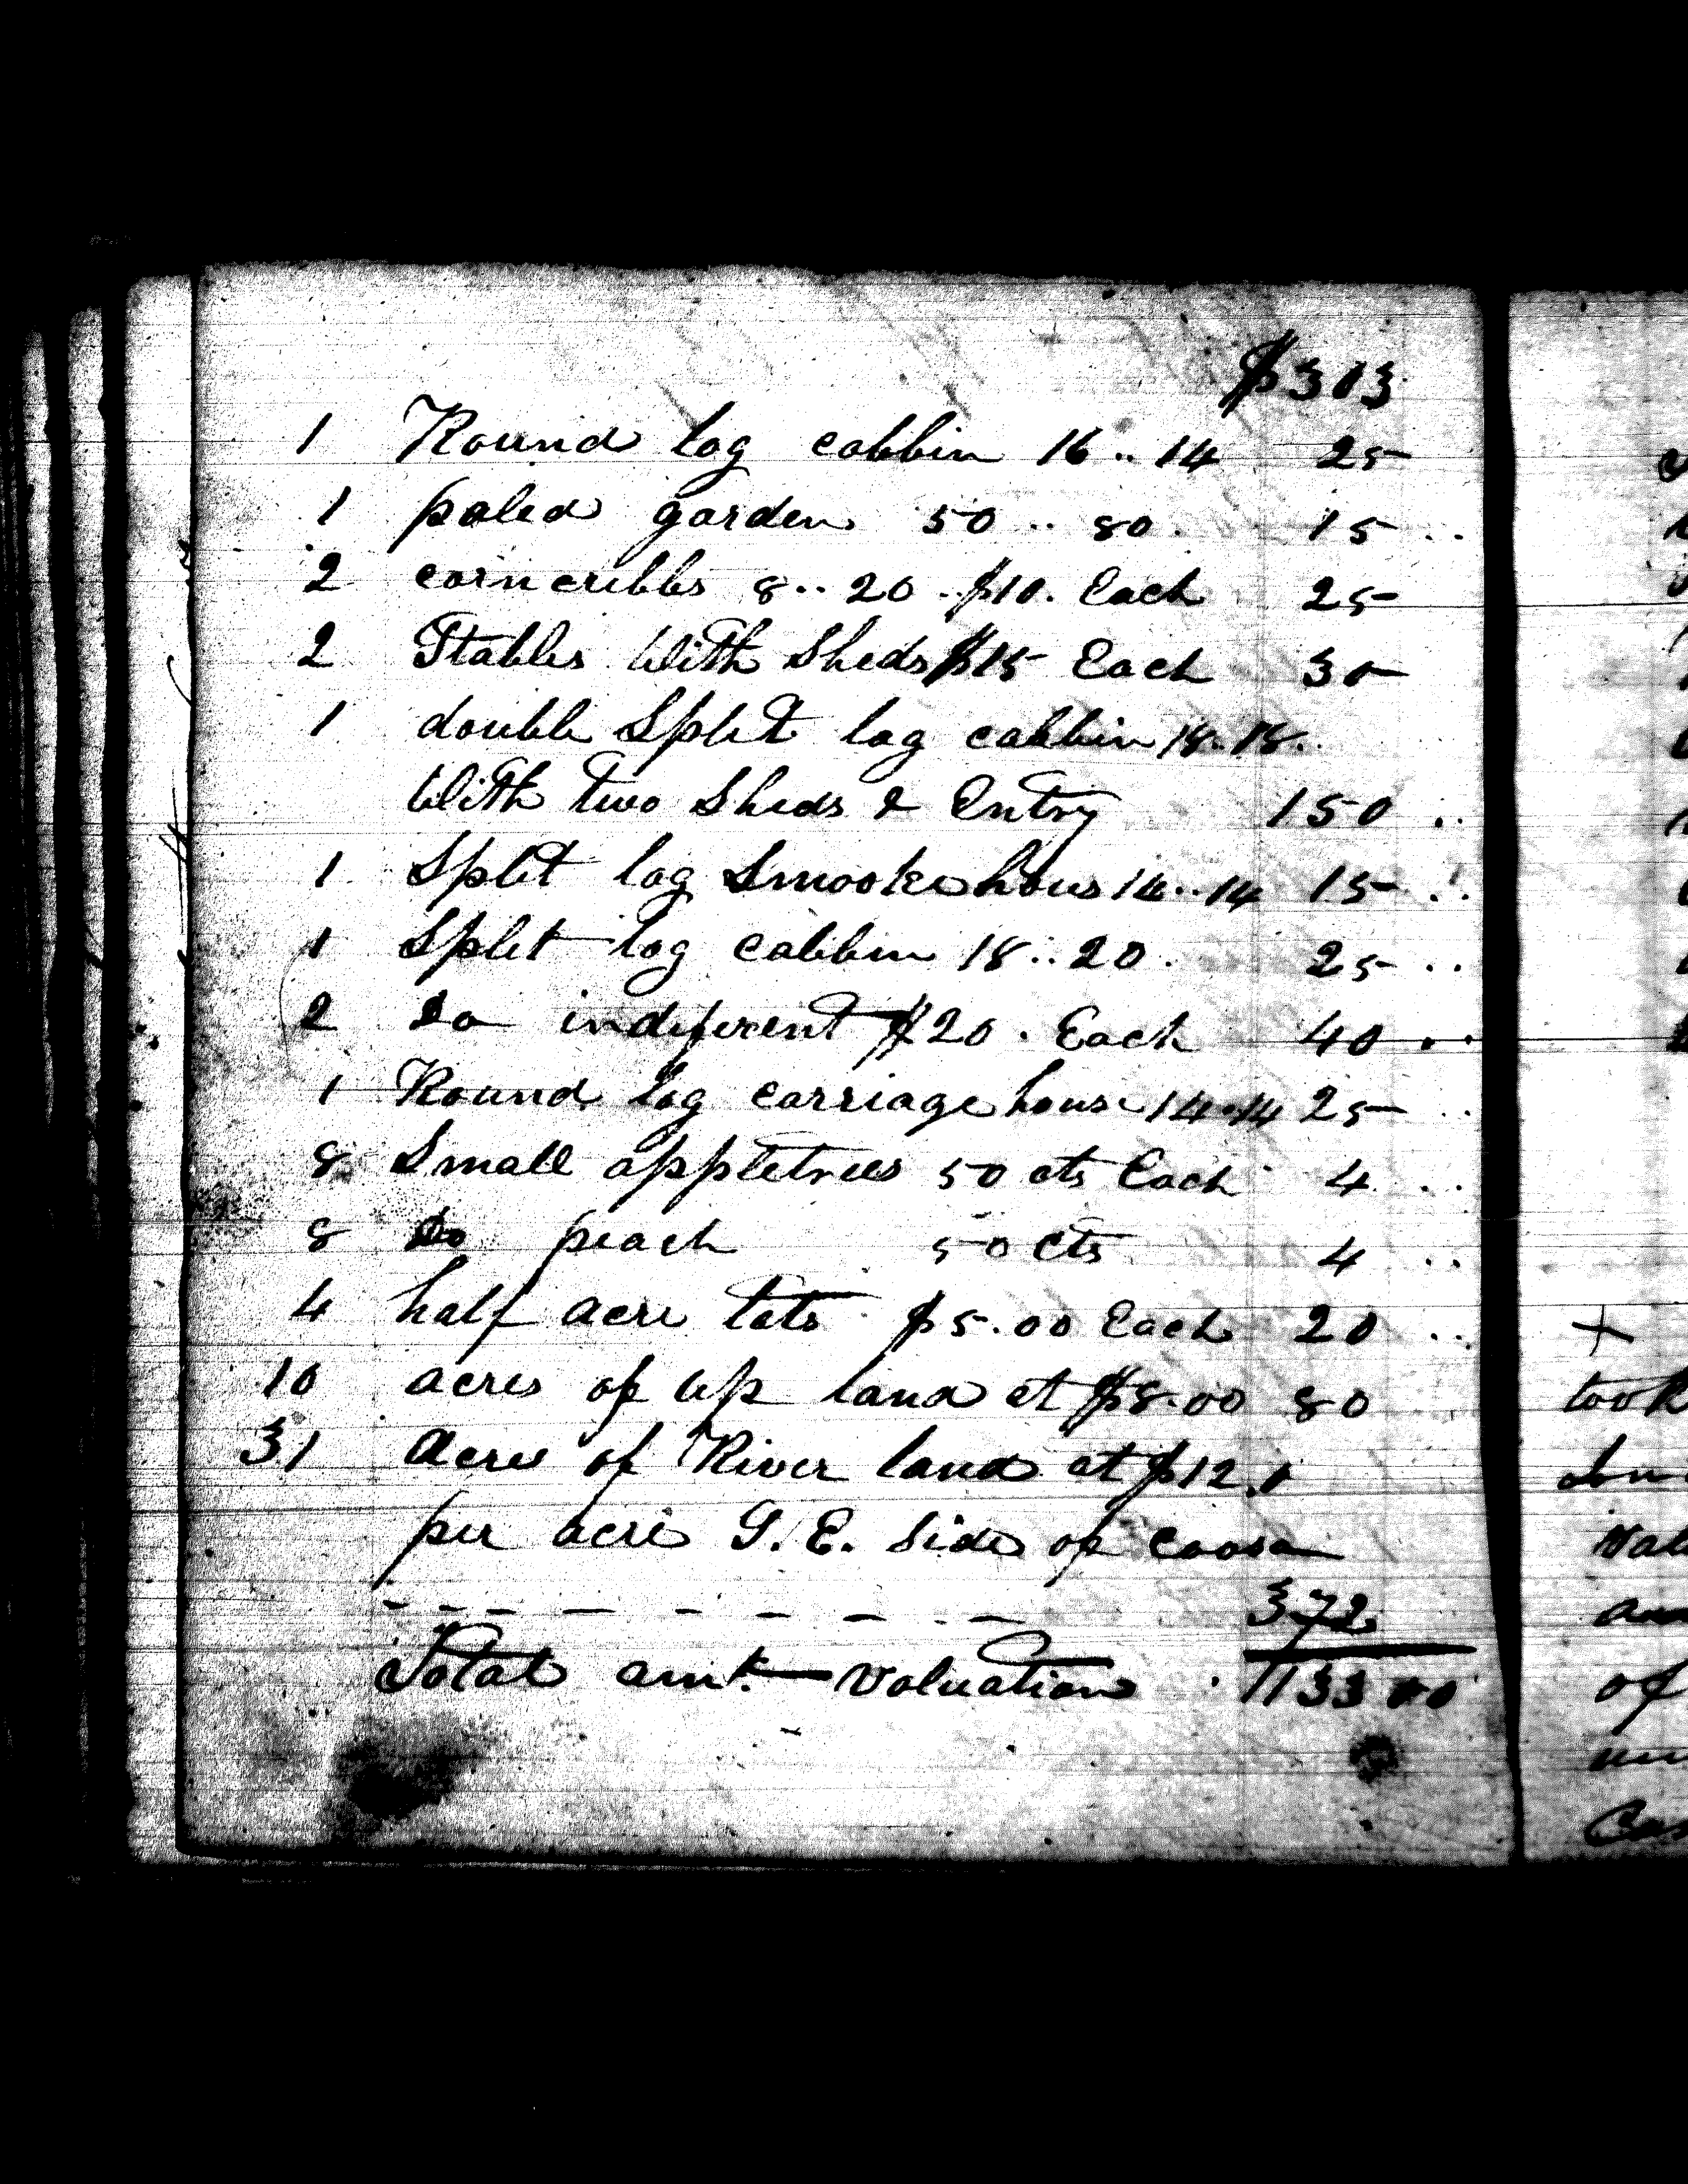 $303
1 Round log cabbin 16 .. 14 25
1 paled garden 50 .. 80 . 15 ..
2 corn cribbs 8 .. 20 .. $10. Each 25
2 Stables With Sheds $15 Each 30
1 double Split log cabbin 18..18..
With two Sheds & Entry 150 ..
1 Split log Smooke hous 14..14 15 ..
1 Split log cabbin 18..20 . 25 ..
2 Do indiferent $20 . Each 40 ..
1 Round log carriage house 14..14 25 ..
8 Small appletrees 50 cts Each 4 ..
8 Do peach 50 cts 4 ..
4 half acre lots $5.00 Each 20 ..
10 acres of up land at $8.00 80
31 acres of River land at $12.
per acre S. E. Side of Coosa
- - - - - - - - - 372
Total amt. Valuation . 1133 00
+
took
of